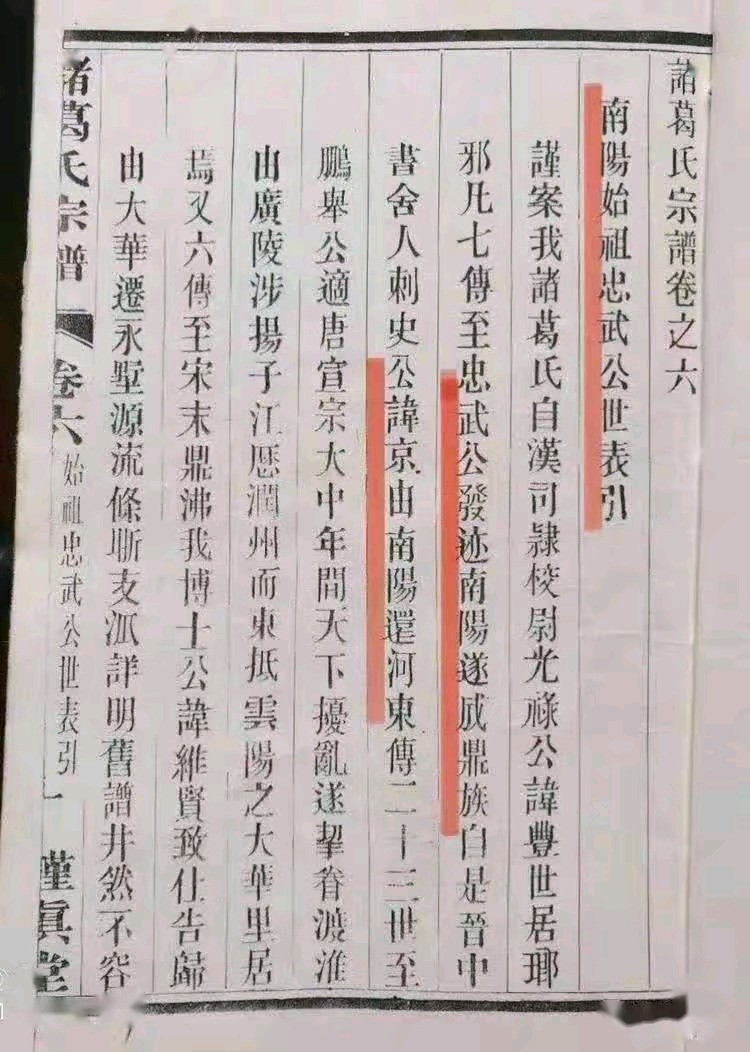 諸葛氏宗譜卷之六
南陽始祖忠武公世表引
謹案我諸葛氏自漢司隷校尉光祿公諱豐世居瑯
邪凡七傳至忠武公發迹南陽遂成鼎族自是晉中
書舍人刺史公諱京由南陽還河東傳二十三世至
鵬舉公適唐宣宗大中年間天下擾亂遂挈眷渡淮
由廣陵涉揚子江歷潤州而東抵雲陽之大華里居
焉又六傳至宋末鼎沸我博士公諱維賢致仕告歸
由大華遷永墅源流條晰支派詳明舊譜井然不容
諸葛氏宗譜 卷六 始祖忠武公世表引 一 堂